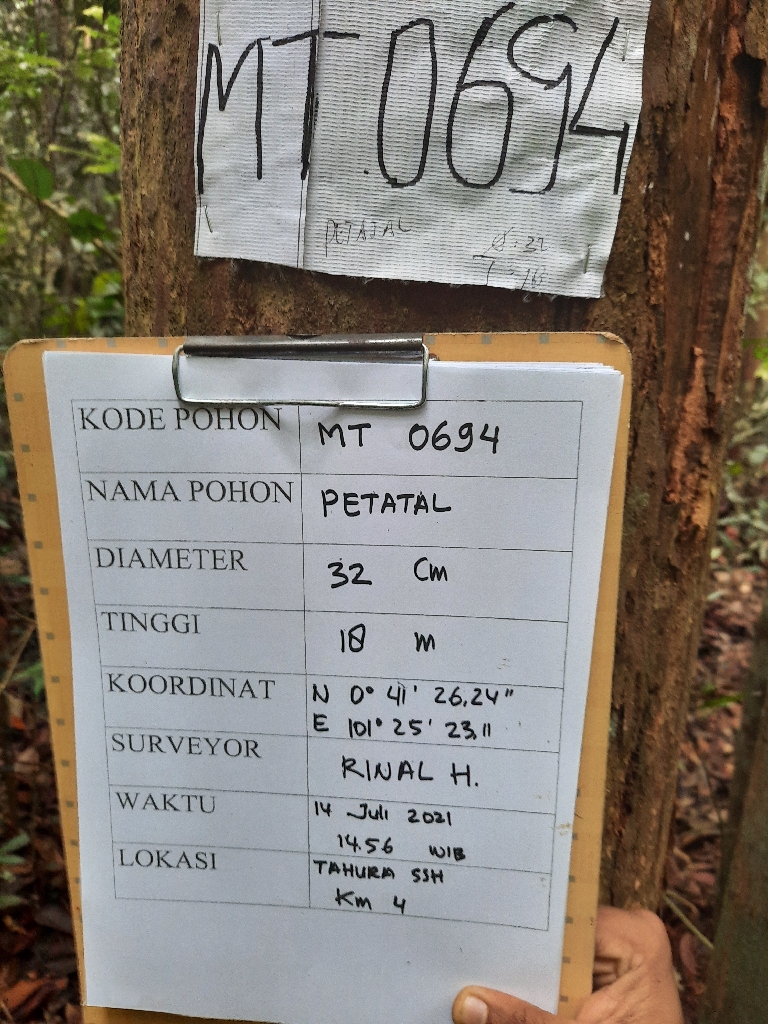 MT.0694
PETATAL
Ø: 32
KODE POHON MT 0694
NAMA POHON PETATAL
DIAMETER 32 Cm
TINGGI 18 m
KOORDINAT N 0° 41' 26,24"
E 101° 25' 23,11
SURVEYOR RINAL H.
WAKTU 14 Juli 2021
14.56 WIB
LOKASI TAHURA SSH
Km 4